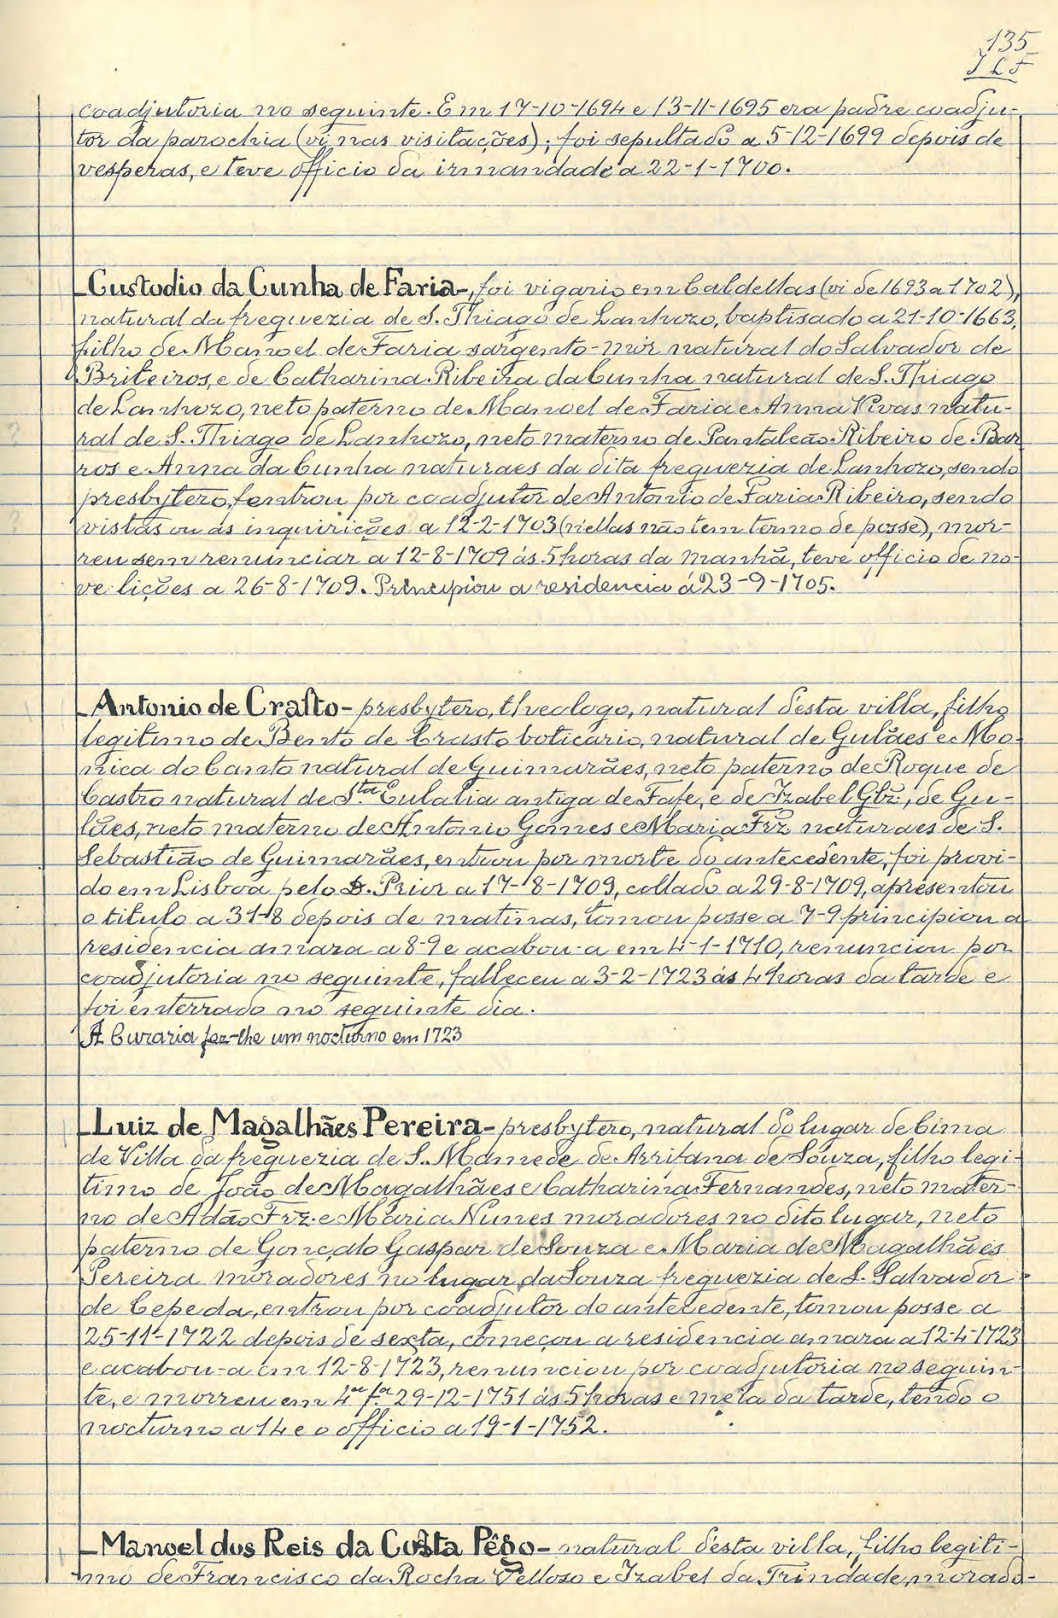 135
J L F
coadjutoria no seguinte. Em 17-10-1694 e 13-11-1695 era padre coadju-
tor da parochia (vi nas visitações); foi sepultado a 5-12-1699 depois de
vesperas, e teve officio da irmandade a 22-1-1700.
Custodio da Cunha de Faria-, foi vigario em Caldellas (vi de 1693 a 1702),
natural da freguezia de S. Thiago de Lanhozo, baptisado a 21-10-1663,
filho de Manoel de Faria sargento-mór natural do Salvador de
Briteiros, e de Catharina Ribeira da Cunha natural de S. Thiago
de Lanhozo, neto paterno de Manoel de Faria e Anna Vivas natu-
ral de S. Thiago de Lanhozo, neto materno de Pantaleão Ribeiro de Bar
ros e Anna da Cunha naturaes da dita freguezia de Lanhozo, sendo
presbytero, entrou por coadjutor de Antonio de Faria Ribeiro, sendo
vistas ou as inquirições a 12-2-1703 (nellas não tem termo de posse), mor-
reu sem renunciar a 12-8-1709 ás 5 horas da manhã, teve officio de no-
ve lições a 26-8-1709. Principiou a residencia á 23-9-1705.
Antonio de Crasto- presbytero, theologo, natural desta villa, filho
legitimo de Bento de Crasto boticario, natural de Gulães e Mo-
nica do Canto natural de Guimarães, neto paterno de Roque de
Castro natural de Sta Eulalia antiga de Fafe, e de Izabel Glz, de Gu-
lães, neto materno de Antonio Gomes e Maria Frz naturaes de S.
Sebastião de Guimarães, entrou por morte do antecedente, foi provi-
do em Lisboa pelo D. Prior a 17-8-1709, collado a 29-8-1709, apresentou
o titulo a 31-8 depois de matinas, tomou posse a 7-9 principiou a
residencia amara a 8-9 e acabou-a em 4-1-1710, renunciou por
coadjutoria no seguinte, falleceu a 3-2-1723 ás 4 horas da tarde e
foi enterrado no seguinte dia.
A Curaria fez-lhe um nocturno em 1723
Luiz de Magalhães Pereira- presbytero, natural do lugar de Cima
de Villa da freguezia de S. Mamede de Arrifana de Souza, filho legi-
timo de João de Magalhães e Catharina Fernandes, neto mater-
no de Adão Frz. e Maria Nunes moradores no dito lugar, neto
paterno de Gonçalo Gaspar de Souza e Maria de Magalhães
Pereira moradores no lugar da Souza freguezia de S. Salvador
de Cepeda, entrou por coadjutor do antecedente, tomou posse a
25-11-1722 depois de sexta, começou a residencia amara a 12-4-1723
e acabou-a em 12-8-1723, renunciou por coadjutoria no seguin-
te, e morreu em 4ª fª 29-12-1751 ás 5 horas e meia da tarde, tendo o
nocturno a 14 e o officio a 19-1-1752.
Manoel dos Reis da Costa Pêgo- natural desta villa, filho legiti-
mo de Francisco da Rocha Velloso e Izabel da Trindade, morado-